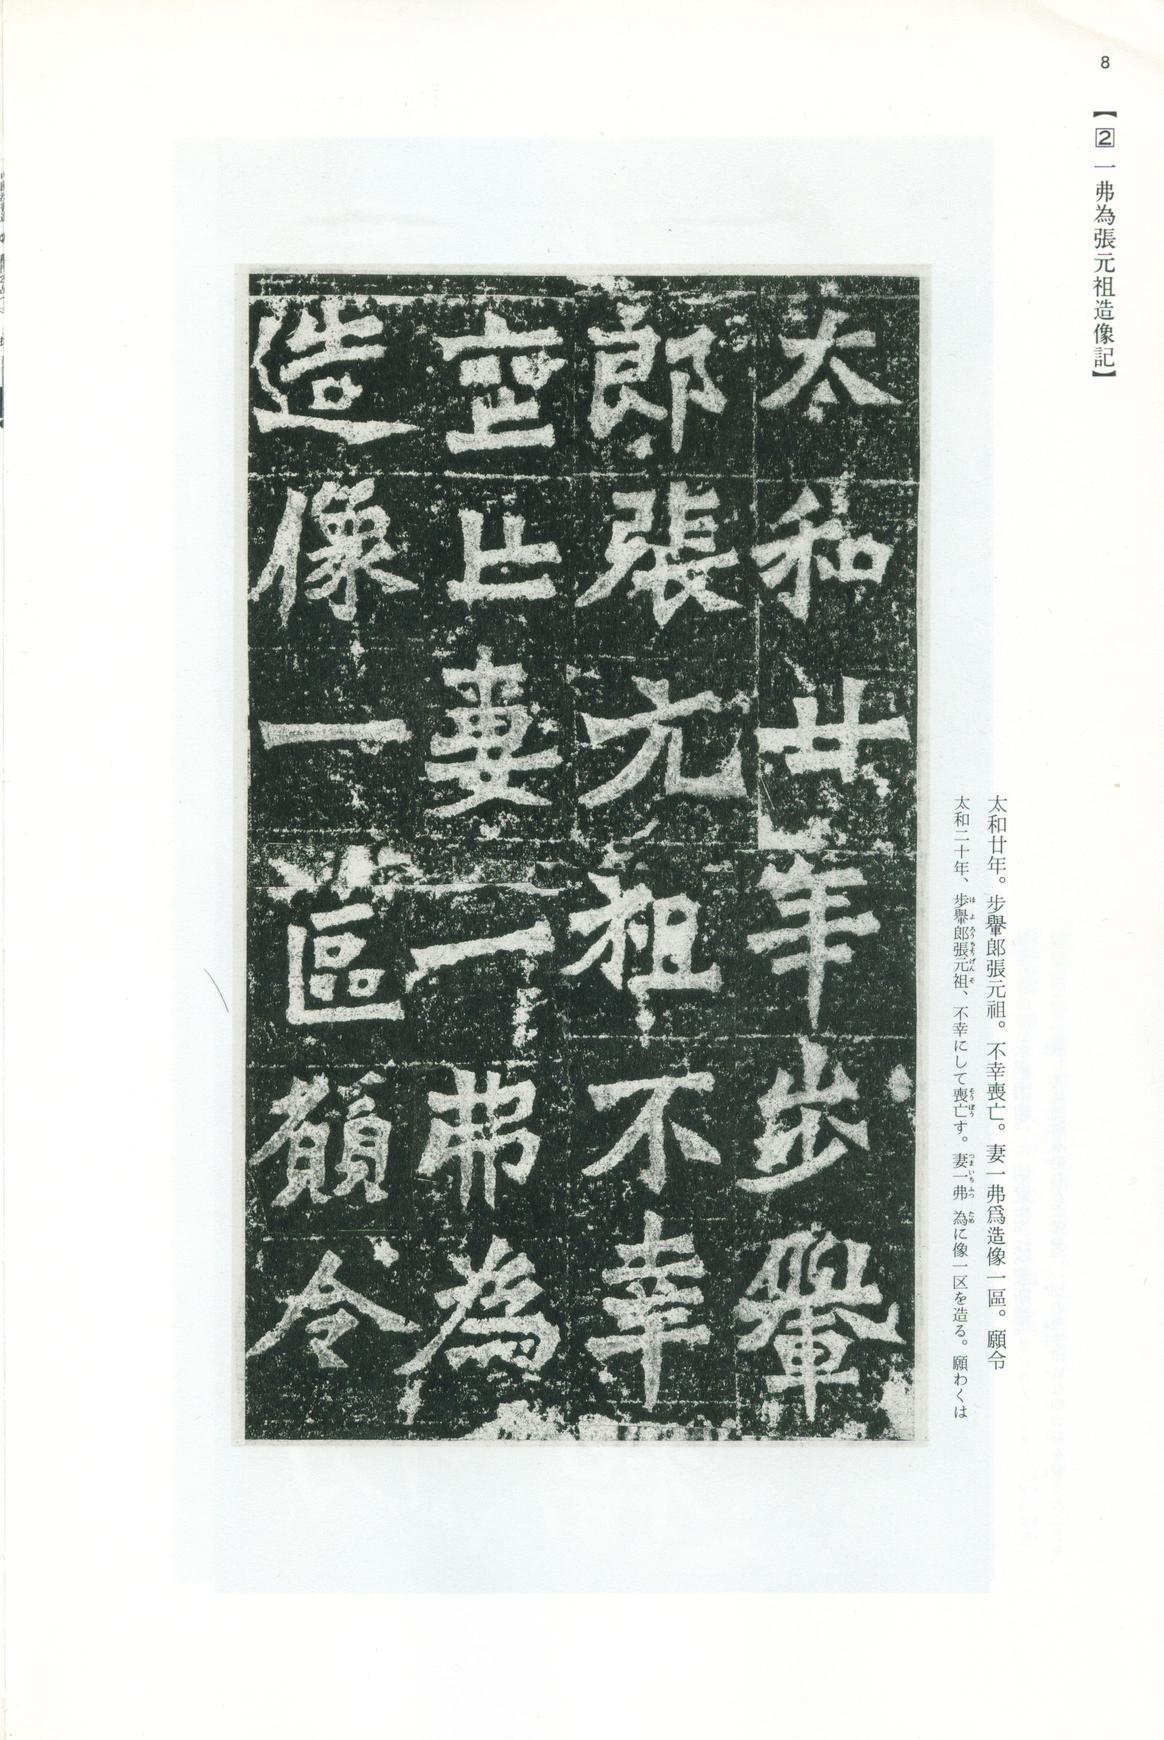 8
【2 一弗為張元祖造像記】
太和廿年。步轝郎張元祖。不幸喪亡。妻一弗爲造像一區。願令
太和二十年、歩轝郎張元祖、不幸にして喪亡す。妻一弗為に像一区を造る。願わくは
太和廿年步轝
郎張元祖不幸
喪亡妻一弗為
造像一區願令